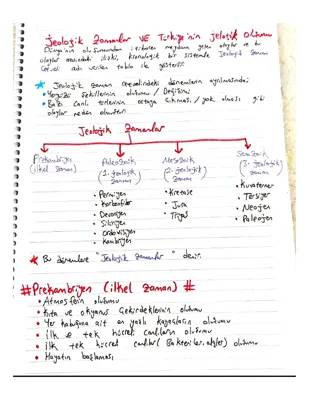 Jeolojik Zamanlar VE Türkiye'nin Jeolojik oluşumu
Dünya'nın oluşumundan itibaren meydana gelen olaylar ve bu
olaylar arasındaki ilişki, kronolojik bir sistemle Jeolojik Zaman
Cetveli adı verilen tablo ile gösterilir.
Jeolojik zaman cetvelindeki dönemlerin ayrılmasında;
Yeryüzü Şekillerinin oluşumu / Değişimi
Bazı Canlı türlerinin ortaya çıkması / yok olması gibi
olaylar neden olmuştur.
Jeolojik Zamanlar
Prekambriyen (ilkel zaman)
Paleozoik (1. jeolojik zaman)
Permiyen
Karbonifer
Devoniyen
Silüriyen
Ordovisiyen
Kambriyen
Mesozoik (2. jeolojik zaman)
Kretase
Jura
Triyas
Senozoik (3. jeolojik zaman)
Kuvaterner
Tersiyer
Neojen
Paleojen
Bu dönemlere "Jeolojik Zamanlar" denir.
#Prekambriyen (ilkel zaman) #
Atmosferin oluşumu
Kıta ve okyanus Çekirdeklerinin oluşumu
Yer kabuğuna ait en yaşlı kayaçların oluşumu
İlk ve tek hücreli canlıların oluşumu
İlk tek hücreli canlılar (Bakteriler, algler) oluşumu
Hayatın başlaması